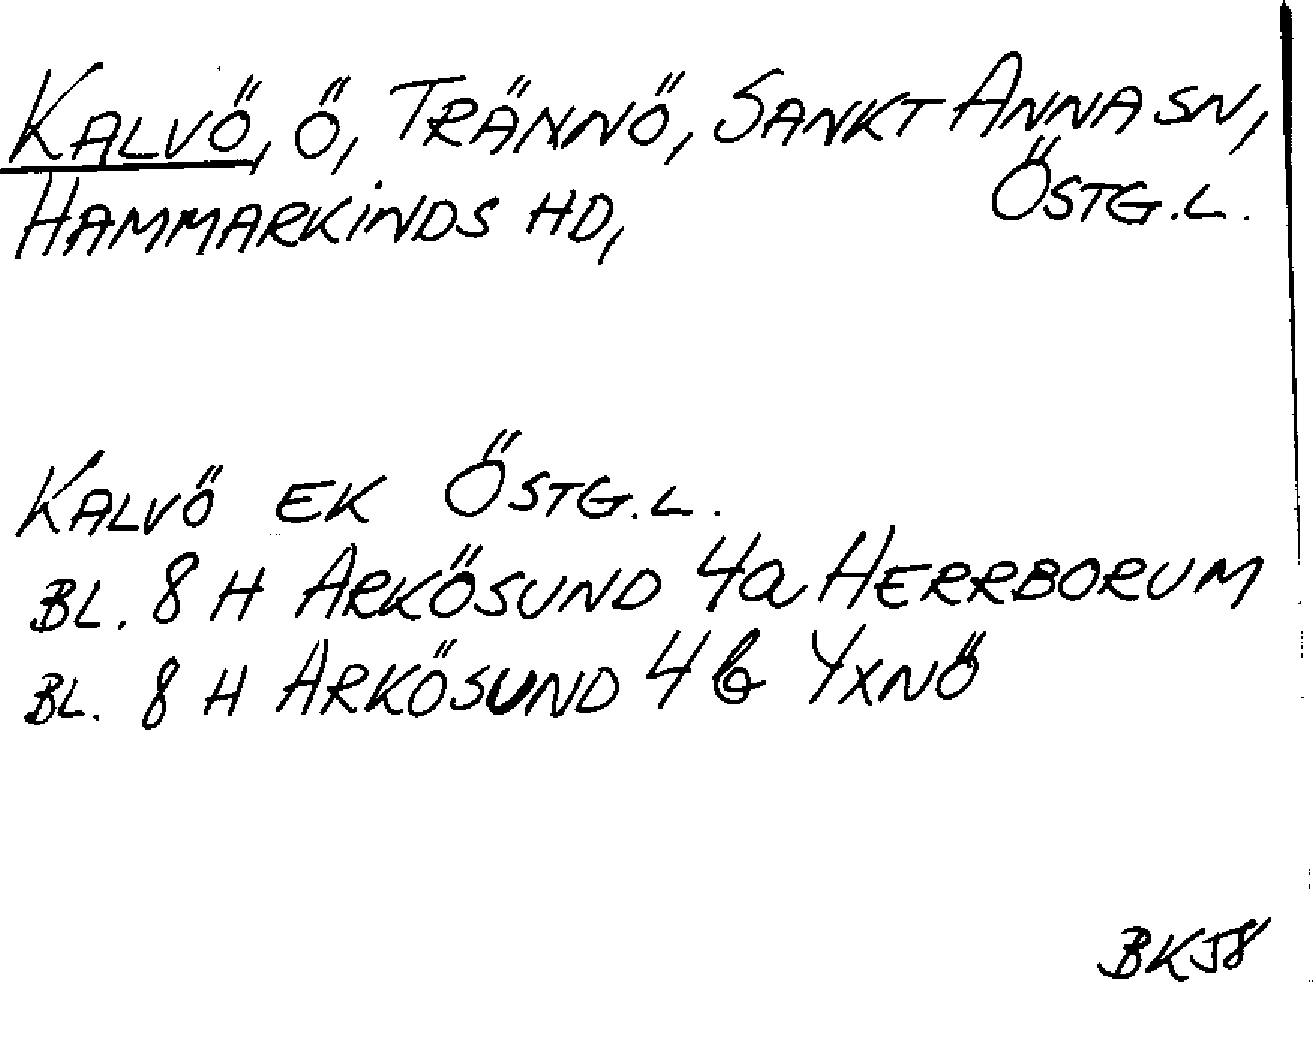 KALVÖ, Ö, TRÄNNÖ, SANKT ANNA SN,
HAMMARKINDS HD, ÖSTG.L.
KALVÖ EK ÖSTG.L.
BL. 8 H ARKÖSUND 4a HERRBORUM
BL. 8 H ARKÖSUND 4b YXNÖ